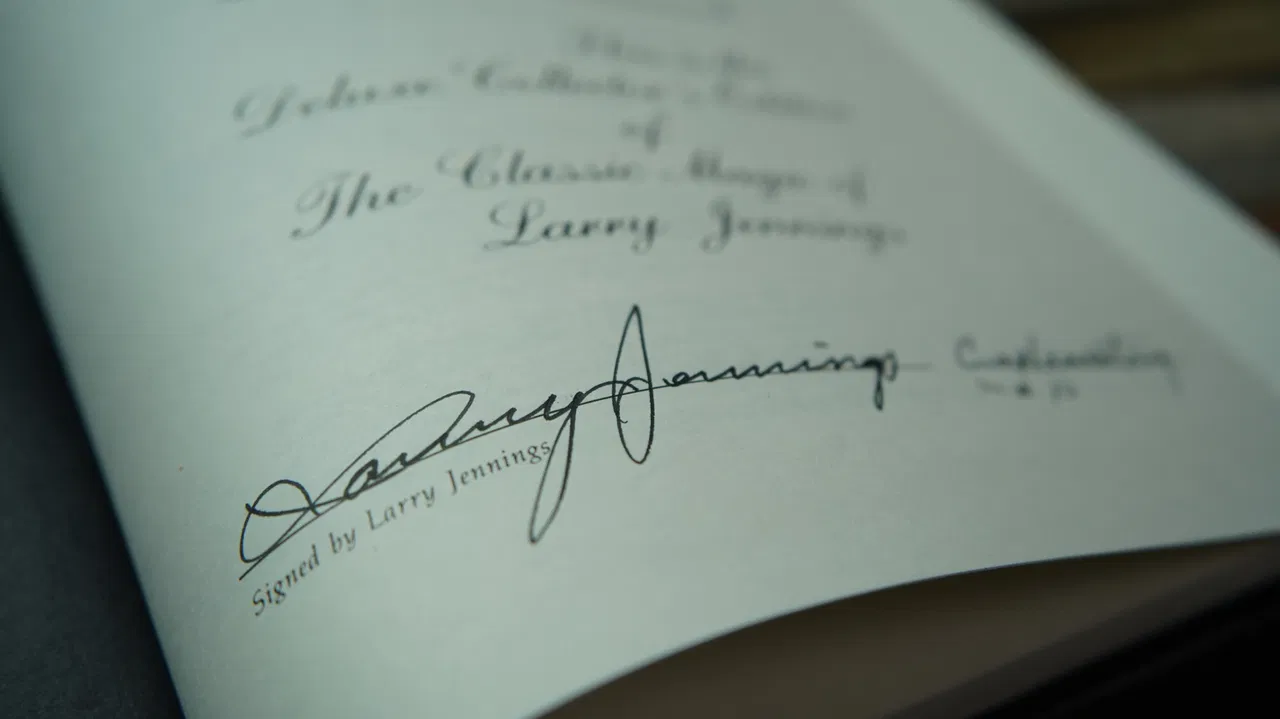 This is the
Deluxe Collector's Edition
of
The Classic Magic of
Larry Jennings
Larry Jennings
Signed by Larry Jennings